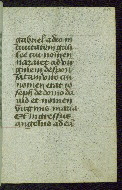 gabriel a deo in
ciuitatem gali
lee cui nomen
nazaret ad vir
ginem despon
satam viro cui
nomen erat io
seph de domo da
uid et nomen
virginis maria
Et ingressus
angelus ad eā